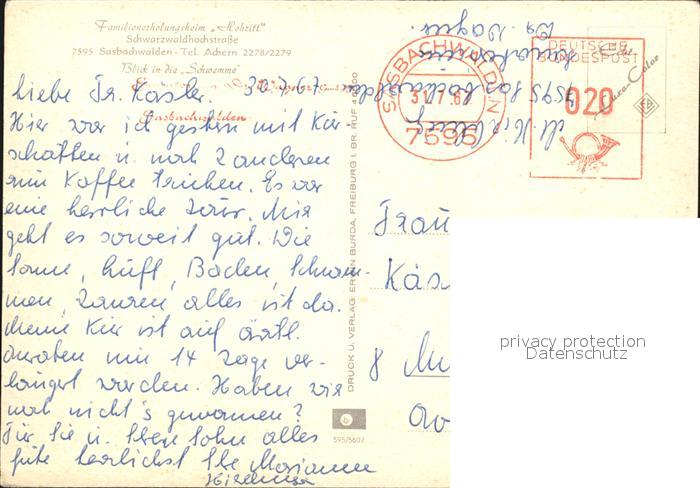 Familienerholungsheim „Mohritt"
Schwarzwaldhochstraße
7595 Sasbachwalden - Tel. Achern 2278/2279
Blick in die „Schwemme"
Sasbachwalden
Liebe Fr. Kässler. 30.7.67
Hier war ich gestern mit Kur-
schatten u. noch 2 anderen
zum Kaffee trinken. Es war
eine herrliche Tour. Mir
geht es soweit gut. Die
Sonne, Luft, Baden, Schwim-
men, Tanzen alles ist da.
Meine Kur ist auf ärztl.
Anraten um 14 Tage ver-
längert worden. Haben wir
noch nicht's gewonnen?
Für Sie u. Ihren Sohn alles
Gute herzlichst Ihre
DRUCK U. VERLAG: ERWIN BURDA, FREIBURG I. BR. RUF
595/5607
SASBACHWALDEN
31.7.67
7595
DEUTSCHE
BUNDESPOST
020
Frau
Käs
8 Mü
privacy protection
Datenschutz